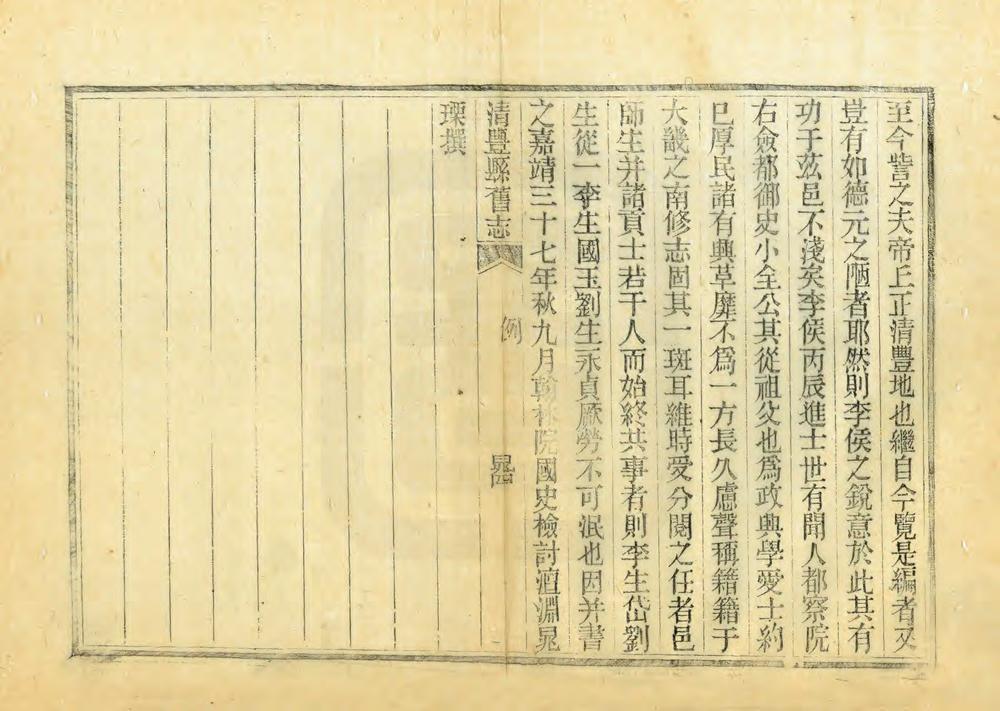 至今訾之夫帝丘正清豐地也繼自今覽是編者又
豈有如德元之陋者耶然則李侯之銳意於此其有
功于茲邑不淺矣李侯丙辰進士世有聞人都察院
右僉都御史小全公其從祖父也爲政興學愛士約
巳厚民諸有興草靡不爲一方長久慮聲稱籍籍于
大畿之南修志固其一斑耳維時受分閱之任者邑
師生并諸貢士若干人而始終共事者則李生岱劉
生從一李生國玉劉生永貞厥勞不可泯也因并書
之嘉靖三十七年秋九月翰林院國史檢討澶淵晁
瑮撰
清豐縣舊志
例